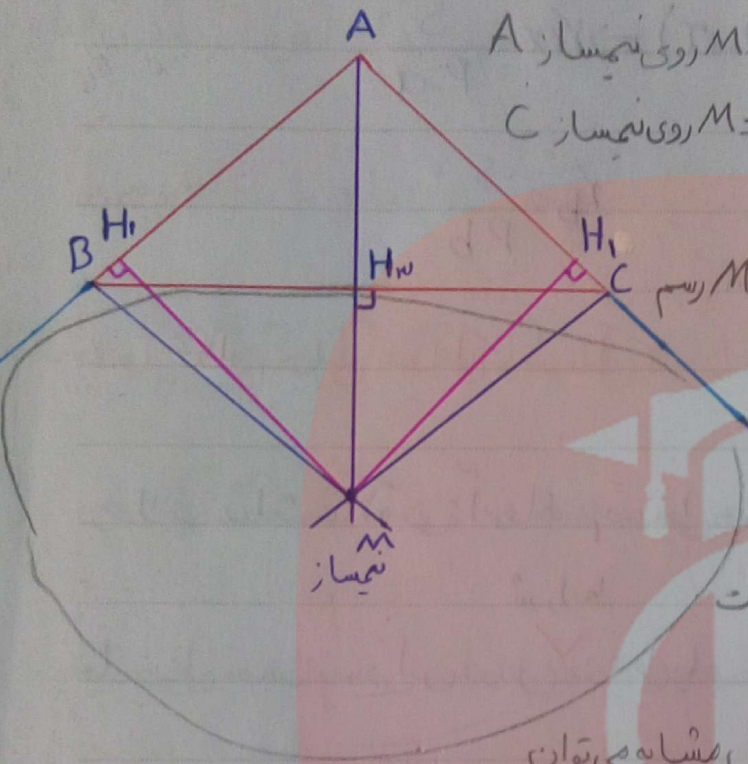 A
M روی نیمساز A
M روی نیمساز C
B H۱ H۳ H۱ C
M رسم
M
نیمساز
ت
مشابه می‌توان